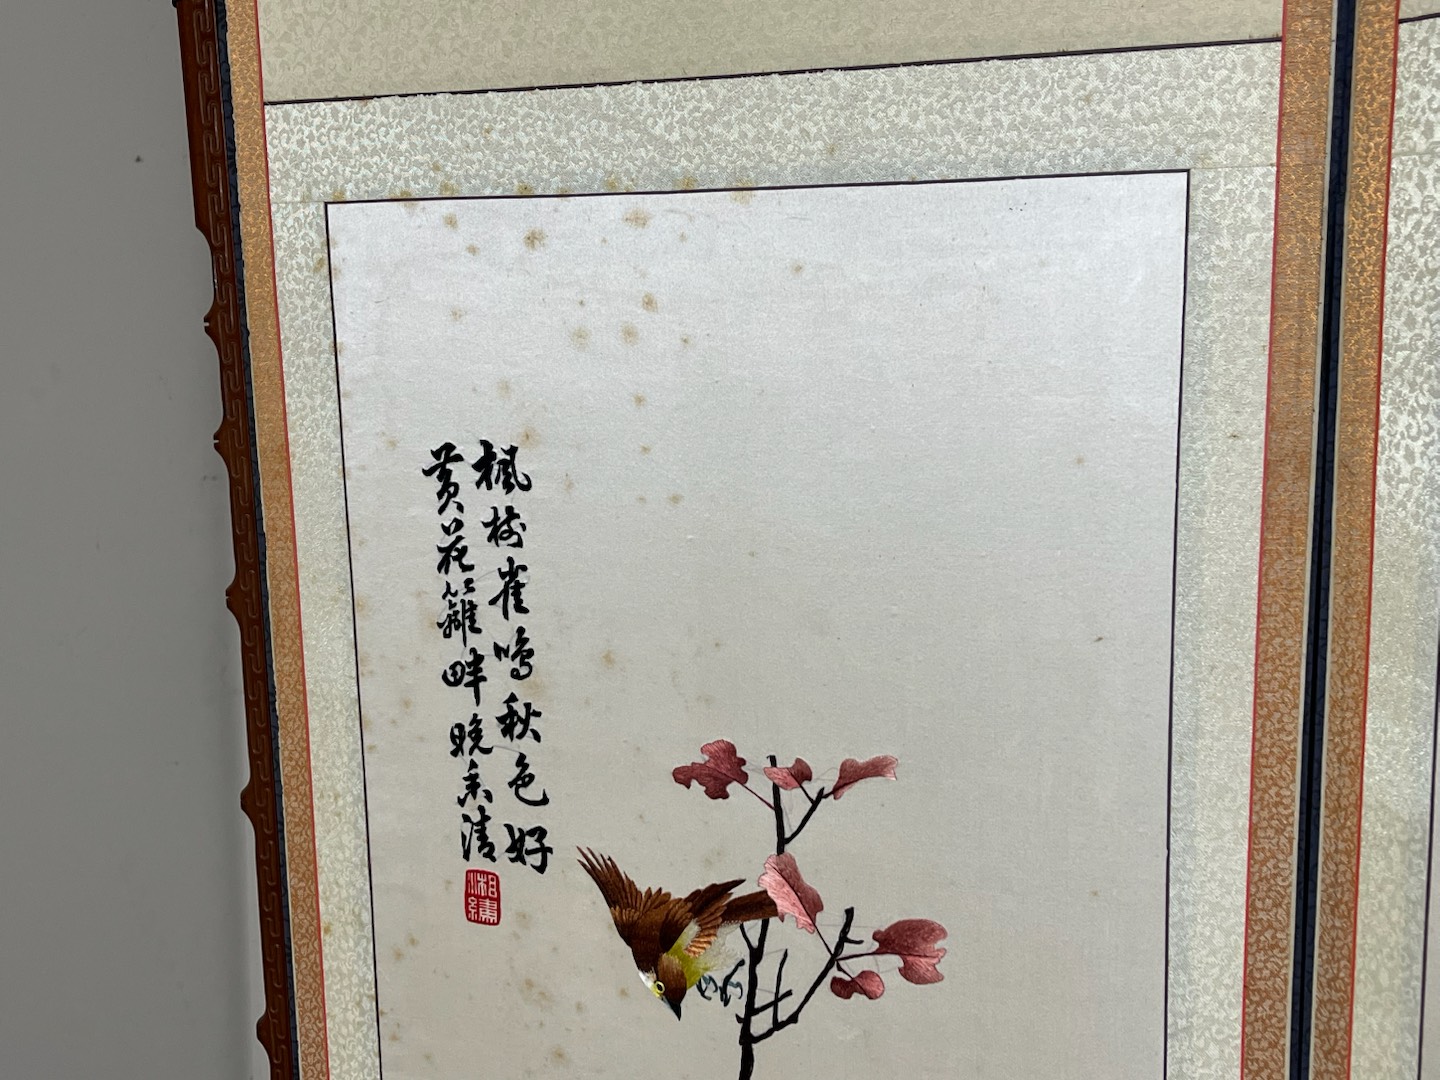 楓樹雀鳴秋色好
黃花籬畔晚香清
湘繡